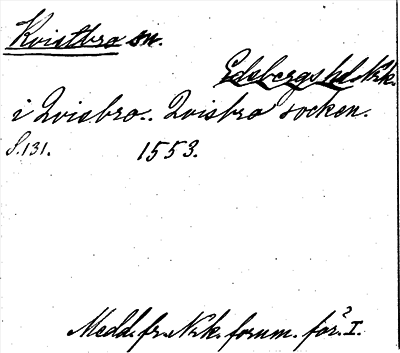 Kvistbro sn.
Edsbergs hd. Nrk.
i Qvisbro.. Qvisbro socken.
S. 131. 1553.
Medd. fr. Nrk. fornm. för.? I.